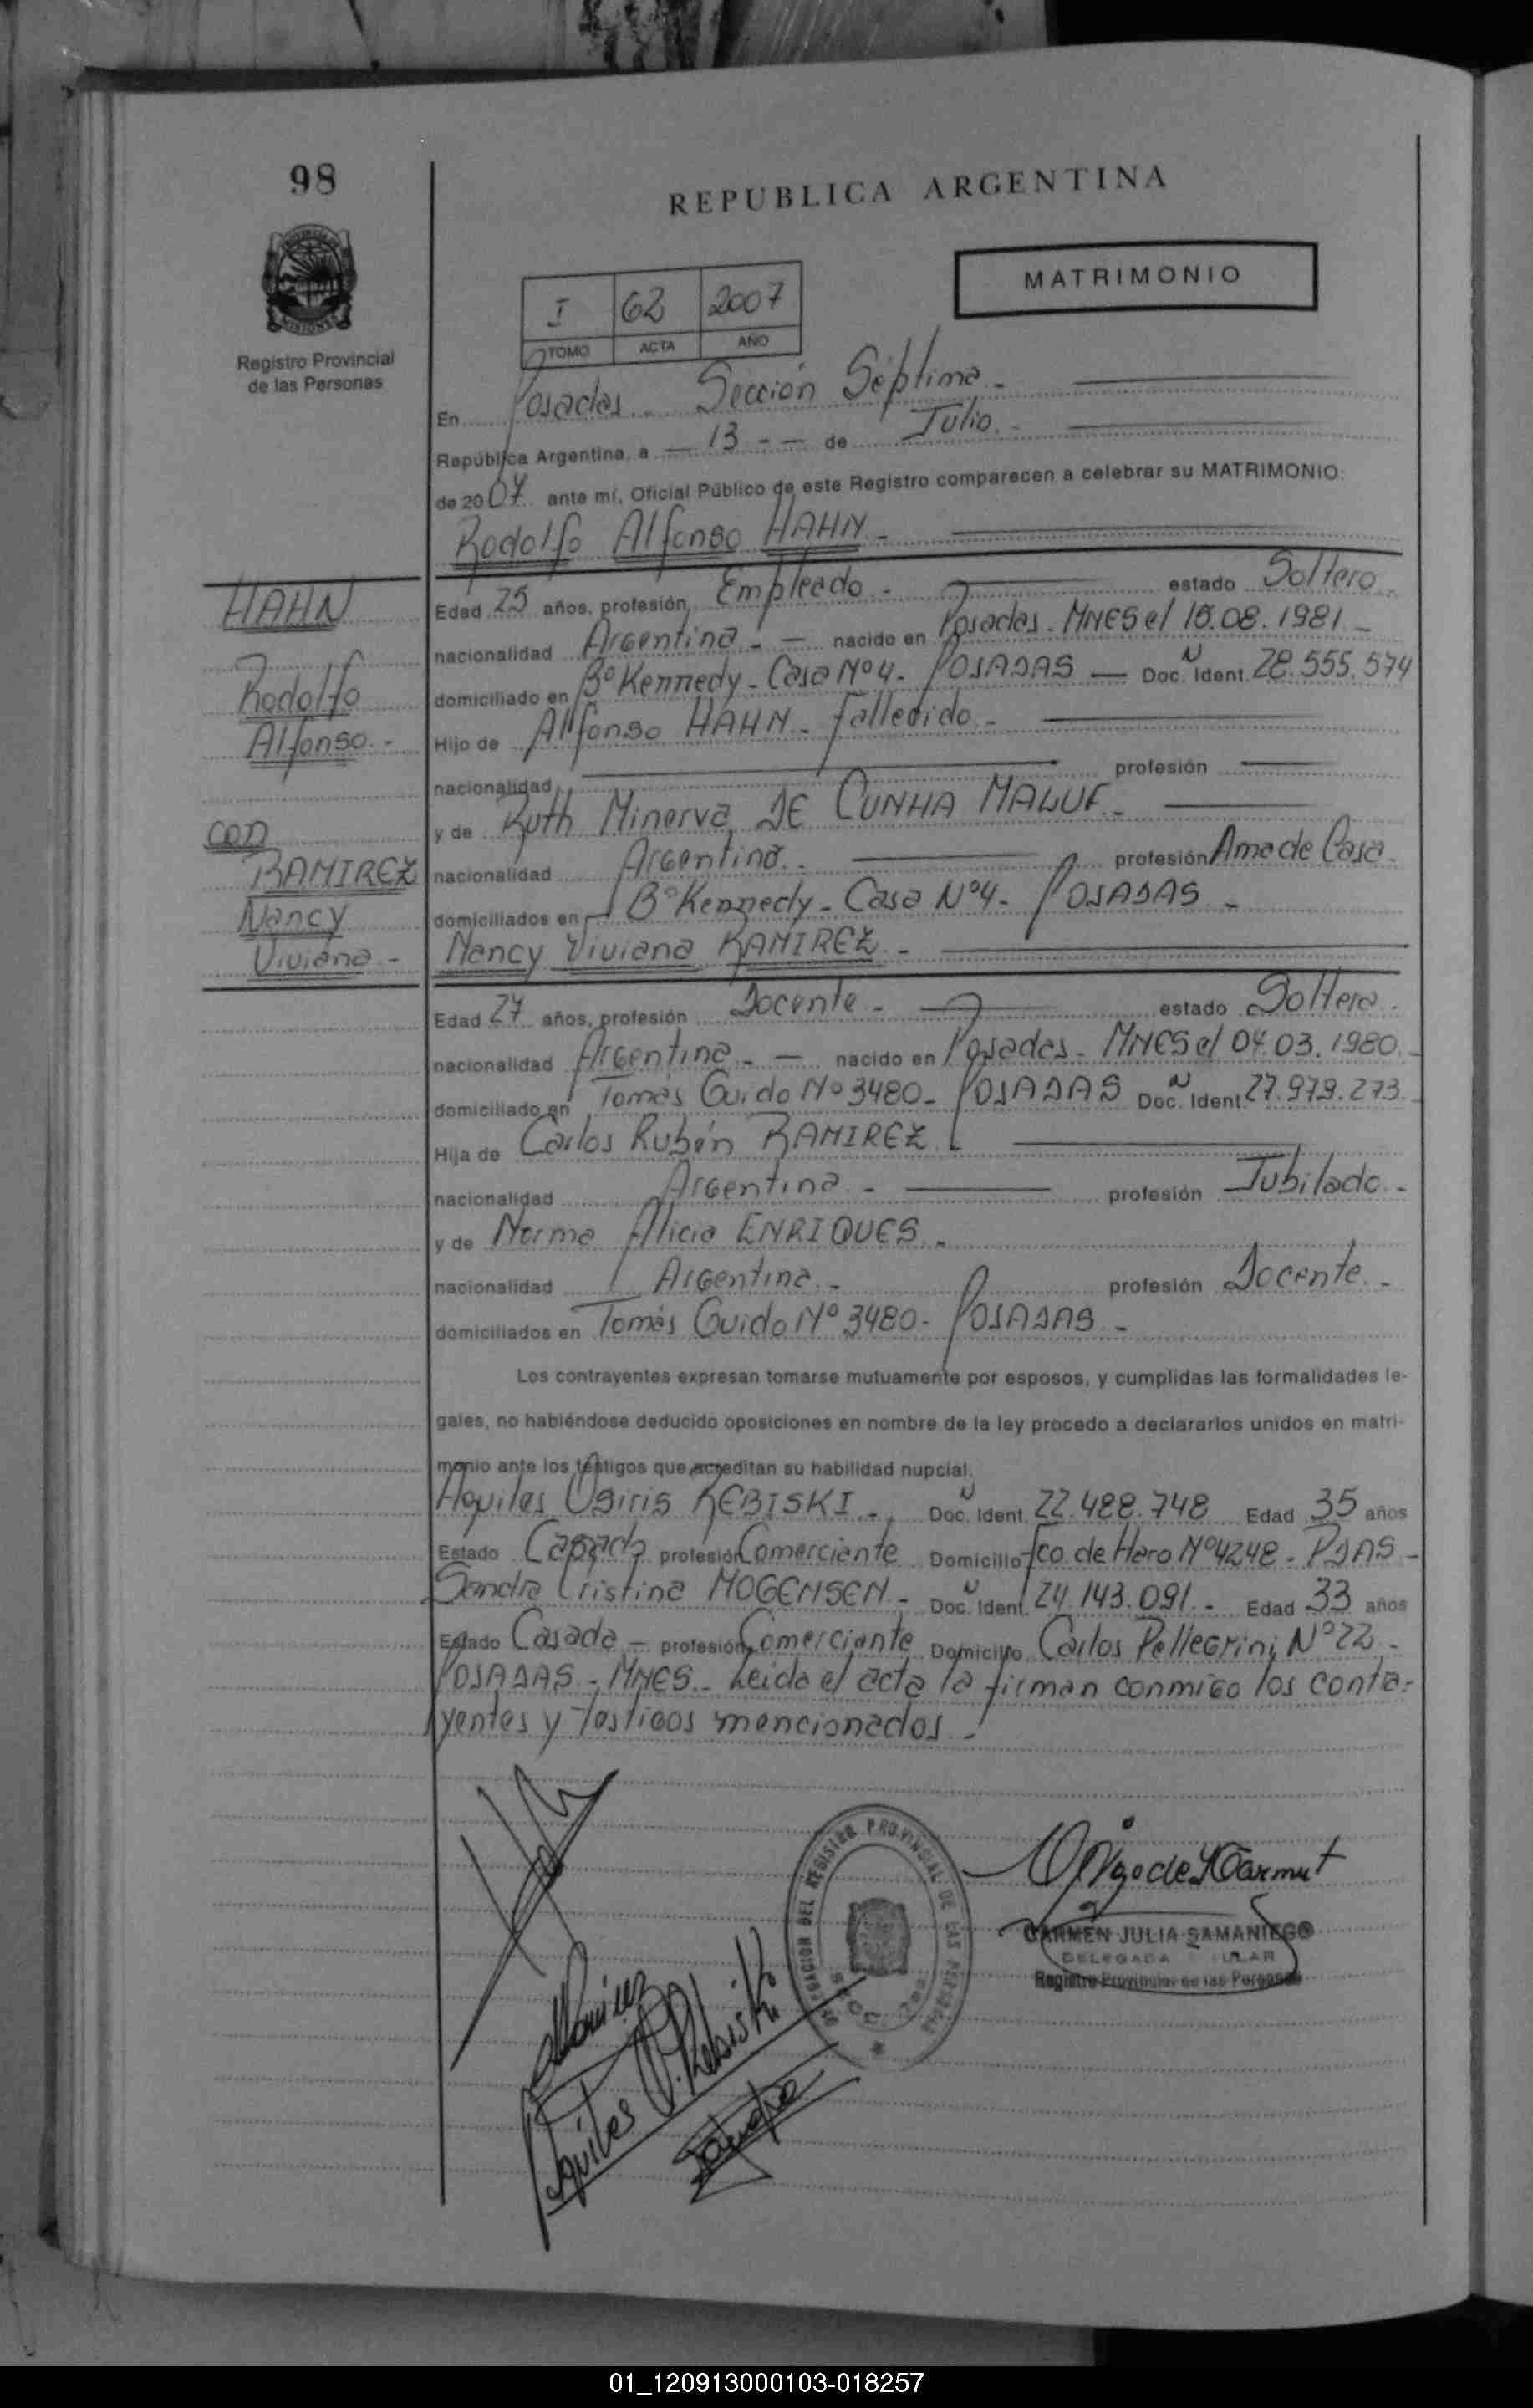 98
REPUBLICA ARGENTINA
Registro Provincial
de las Personas
MATRIMONIO
I 62 2007
TOMO ACTA AÑO
En Posadas. Sección Séptima.-
República Argentina, a — 13 - — de Julio.-
de 2007 ante mí, Oficial Público de este Registro comparecen a celebrar su MATRIMONIO:
Rodolfo Alfonso HAHN.-
HAHN
Rodolfo
Alfonso.-
con
RAMIREZ
Nancy
Viviana.-
Edad 25 años, profesión Empleado.- estado Soltero
nacionalidad Argentina.- — nacido en Posadas. MNES el 18.08.1981.-
domiciliado en Bº Kennedy - Casa Nº 4. POSADAS — Doc. N Ident. 28.555.574
Hijo de Alfonso HAHN - fallecido.-
nacionalidad — profesión —
y de Ruth Minerva DE CUNHA MALUF.-
nacionalidad Argentina.- profesión Ama de Casa.
domiciliados en Bº Kennedy - Casa Nº 4. POSADAS.-
Nancy Viviana RAMIREZ.-
Edad 27 años, profesión Docente.- estado Soltera.-
nacionalidad Argentina.- — nacido en Posadas. MNES el 04.03.1980.-
domiciliado en Tomas Guido Nº 3480. POSADAS Doc. N Ident. 27.979.273.-
Hija de Carlos Rubén RAMIREZ.
nacionalidad Argentina.- profesión Jubilado.-
y de Norma Alicia ENRIQUES.-
nacionalidad Argentina.- profesión Docente.-
domiciliados en Tomás Guido Nº 3480. POSADAS.-
Los contrayentes expresan tomarse mutuamente por esposos, y cumplidas las formalidades le-
gales, no habiéndose deducido oposiciones en nombre de la ley procedo a declararlos unidos en matri-
monio ante los testigos que acreditan su habilidad nupcial.
Aquiles Osiris REBISKI.- Doc. N Ident. 22.488.748 Edad 35 años
Estado Casado profesión Comerciante Domicilio Fco. de Haro Nº 4248. PDAS.-
Sandra Cristina MOGENSEN.- Doc. N Ident. 24.143.091.- Edad 33 años
Estado Casada — profesión Comerciante Domicilio Carlos Pellegrini Nº 22.-
POSADAS - MNES.- Leida el acta la firman conmigo los contra-
yentes y testigos mencionados.-
DELEGACION DEL REGISTRO PROVINCIAL DE LAS PERSONAS
CARMEN JULIA SAMANIEGO
DELEGADA
Registro Provincial de las Personas
Ramirez
Aquiles O. Rebiski
01_120913000103-018257